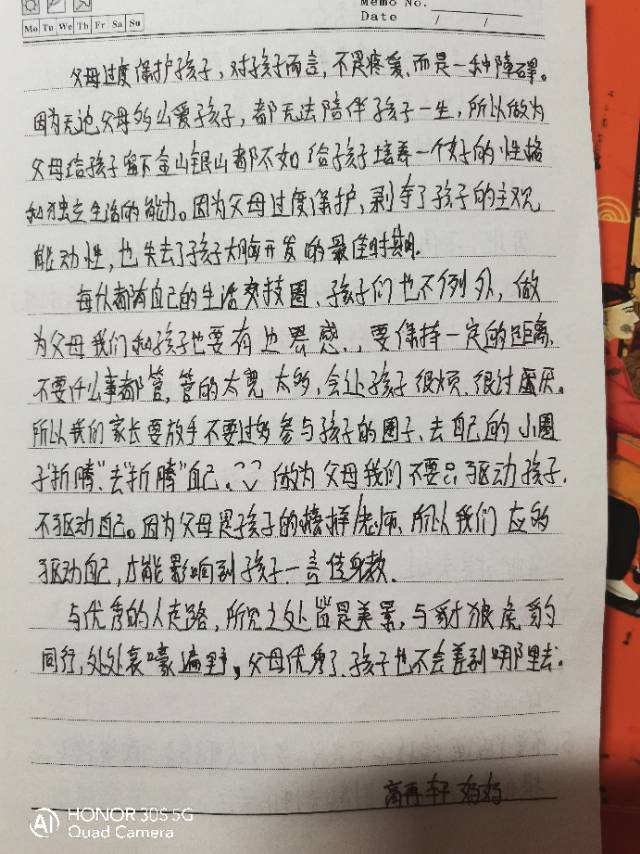 Memo No.
Date / /
Mo Tu We Th Fr Sa Su
父母过度保护孩子，对孩子而言，不是疼爱，而是一种障碍。
因为无论父母多么爱孩子，都无法陪伴孩子一生，所以做为
父母给孩子留下金山银山都不如给孩子培养一个好的性格
和独立生活的能力。因为父母过度保护，剥夺了孩子的主观
能动性，也失去了孩子大脑开发的最佳时期。
每个人都有自己的生活交技圈、孩子们也不例外，做
为父母我们和孩子也要有边界感，要保持一定的距离，
不要什么事都管，管的太宽太多，会让孩子很烦、很讨厌。
所以我们家长要放手不要过多参与孩子的圈子、去自己的小圈
子"折腾"、去"折腾"自己。做为父母我们不要只驱动孩子，
不驱动自己。因为父母是孩子的榜样/老师、所以我们应多
驱动自己，才能影响到孩子一言传身教、
与优秀的人走路，所见之处皆是美景，与豺狼虎豹
同行，处处哀嚎遍野，父母优秀了、孩子也不会差到哪里去。
高再轩 妈妈
AI HONOR 30S 5G
Quad Camera